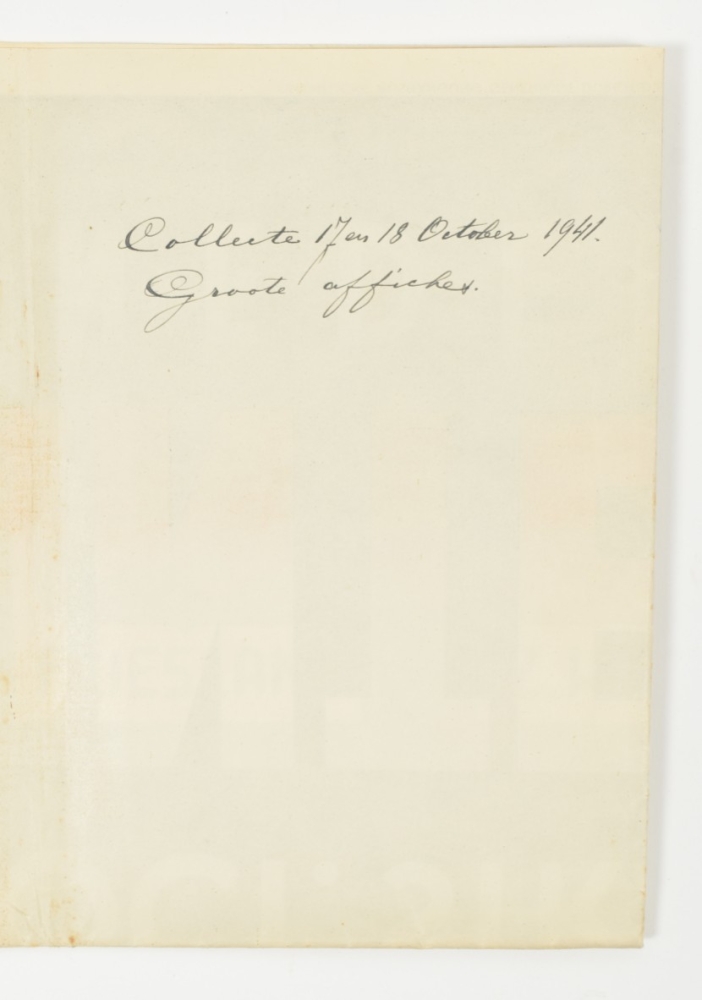 Collecte 17 en 18 October 1941.
Groote affiches.